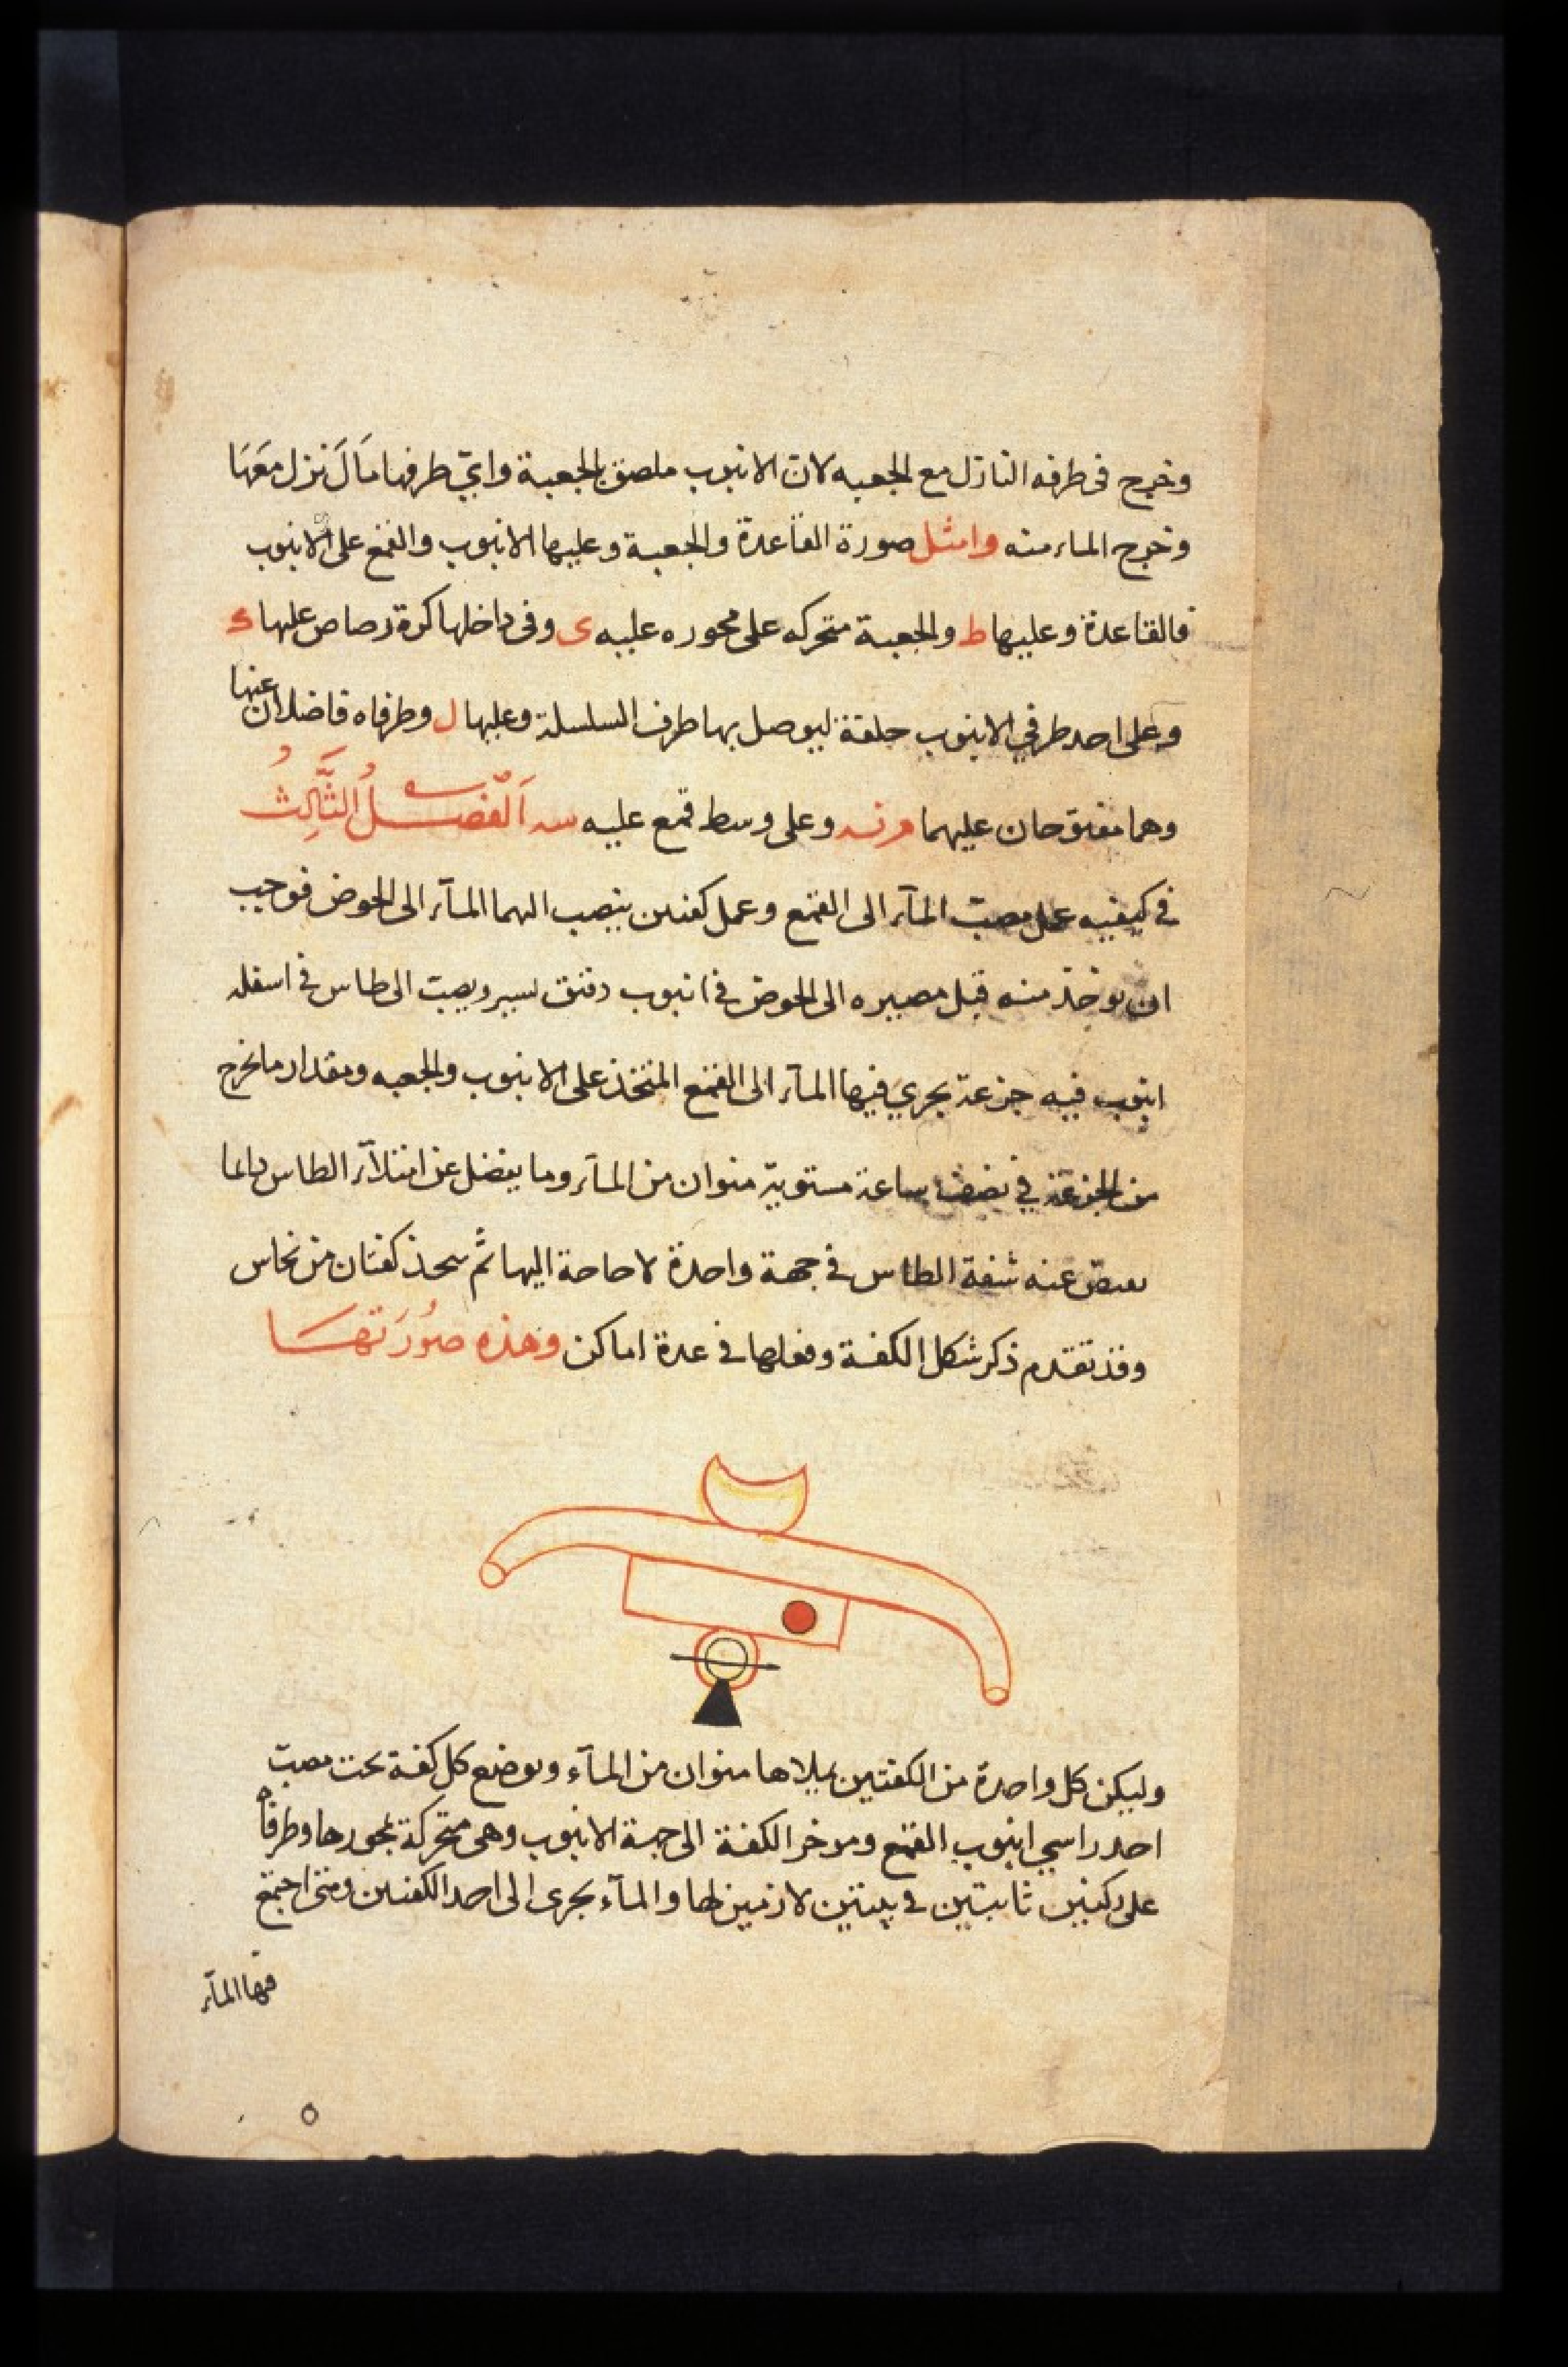 وخرج في طرفه النازل مع الجعبه لان الانبوب ملصق بالجعبة واي طرفها مَالَ نزل معَهَا
وخرج الماء منه وامثل صورة القاعدة والجعبة وعليها الانبوب والقمع على الانبوب
فالقاعدة وعليها ط والجعبة متحركه على محوره عليه ى وفى داخلها كرة رصاص عليها ك
وعلى احد طرفي الانبوب حلقة ليوصل بها طرف السلسلة وعليها ل وطرفاه فاضلان عنها
وهما مفتوحان عليهما م ن وعلى وسط قمع عليه س اَلْفصْلُ الثَّالِثُ
في كيفيه عمل مصب المآء الى القمع وعمل كفتين ينصب اليهما المآء الى الحوض فوجب
ان يوخذ منه قبل مصيره الى الحوض في انبوب دقيق يسير ويصب الى طاس في اسفله
انبوب فيه جزعة يجري فيها المآء الى القمع المتخذ على الانبوب والجعبه ومقدار ما يخرج
من الجزعة في نصف ساعة مستوية منوان من المآء وما يفضل عن امتلآء الطاس دائما
يفيض عنه شفة الطاس في جهة واحدة لا حاحة اليها ثم يتخذ كفتان من نحاس
وقد تقدم ذكر شكل الكفة وفعلها في عدة اماكن وهذه صُورَتهَا
وليكن كل واحدة من الكفتين يملاها منوان من المآء ويوضع كل كفة تحت مصب
احد راسي انبوب القمع وموخر الكفة الى جهة الانبوب وهى متحركة بمحورها وطرفاه
على ركنين ثابتين في بيتين لازمين لها والمآء يجرى الى احد الكفتين ومتى اجتمع
فيها المآء